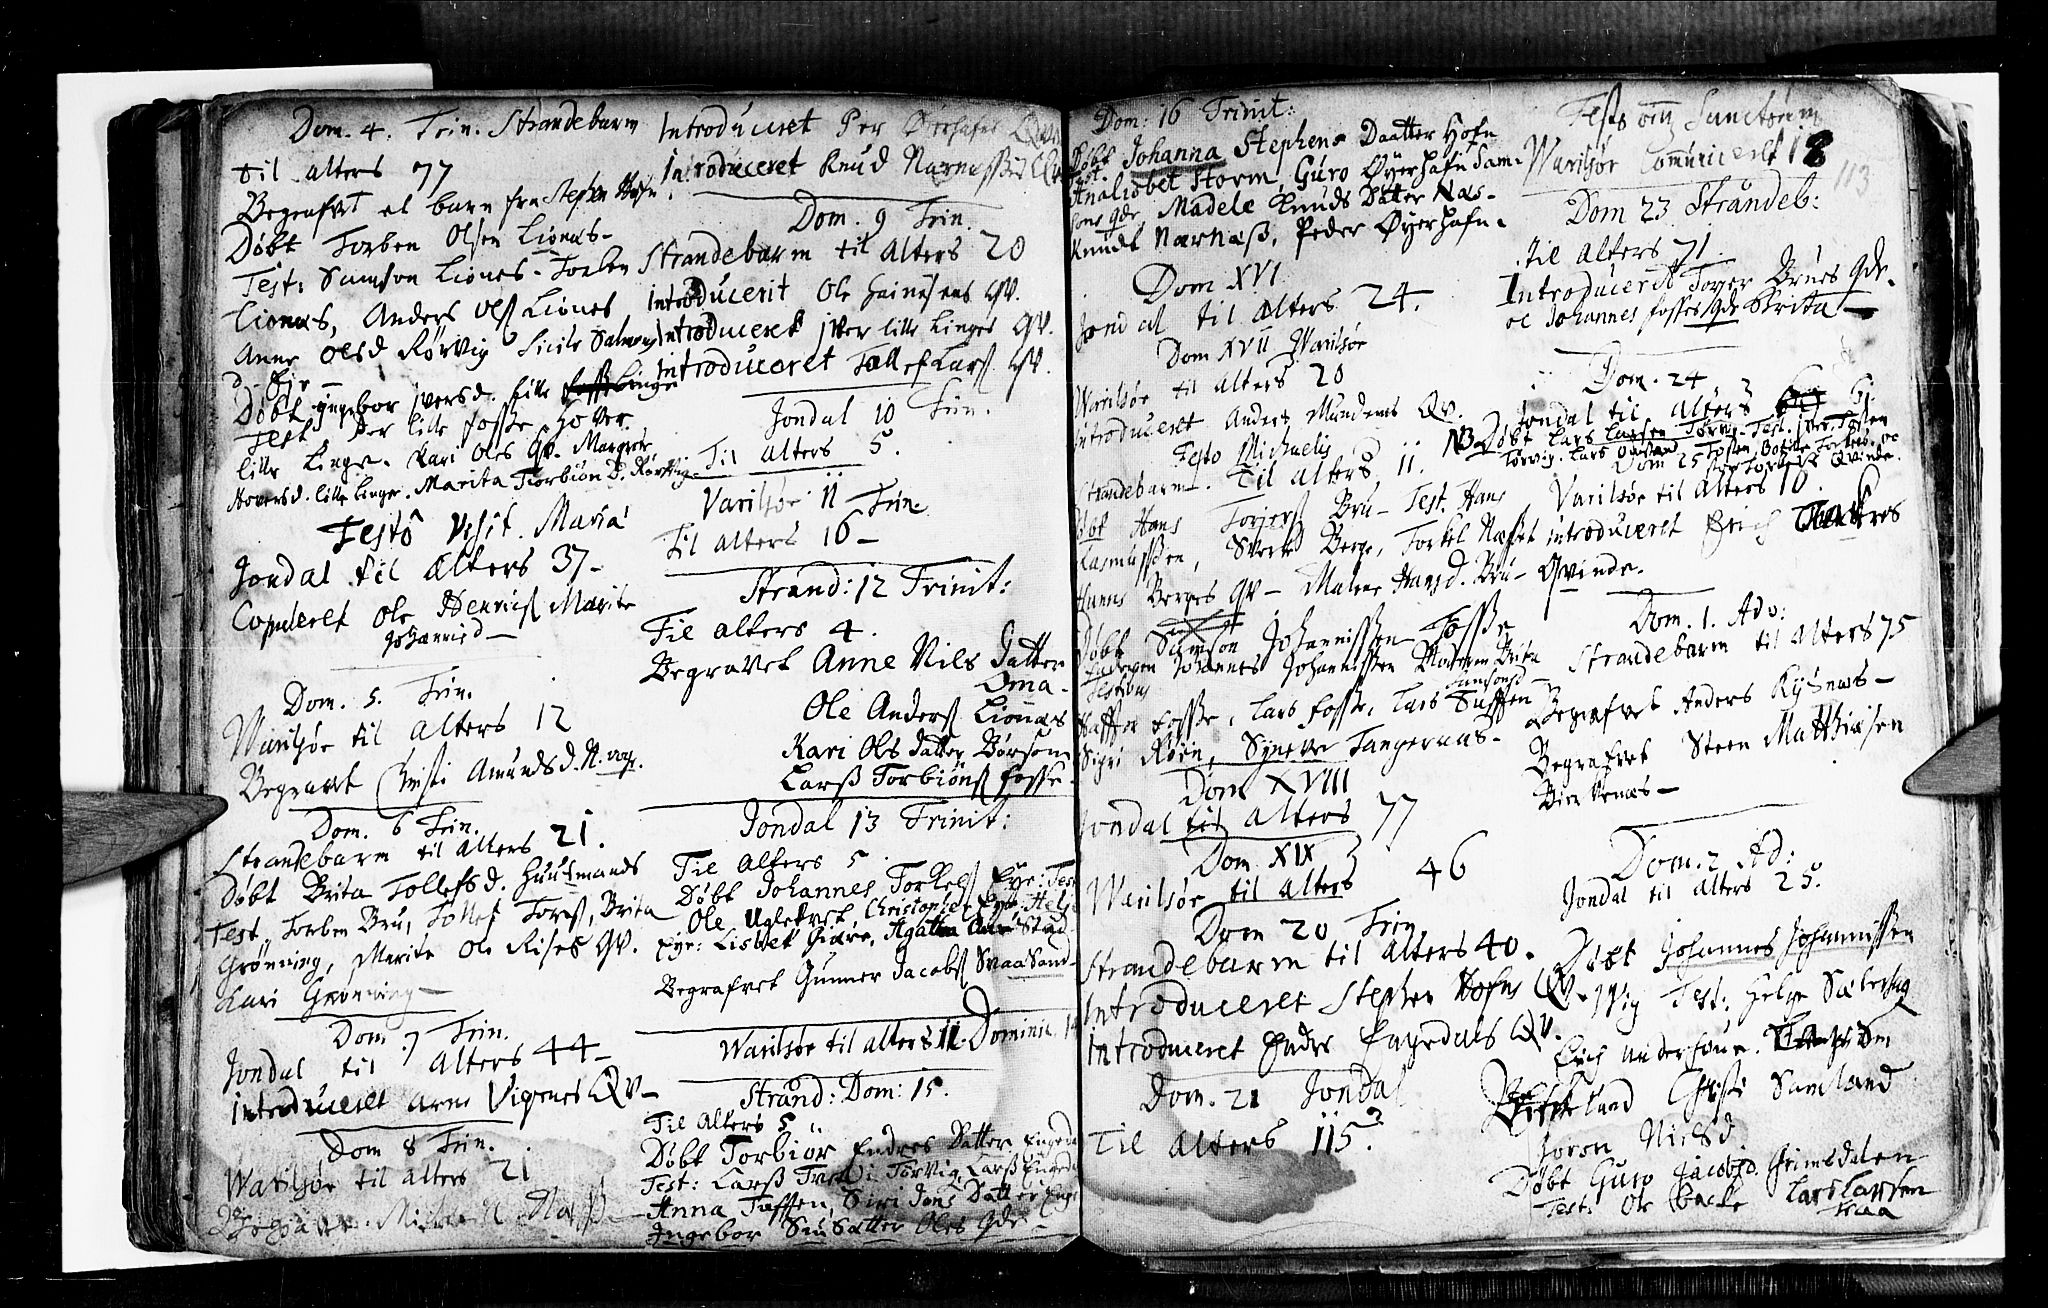 Dom. 4. Trin. Strandebarm
til alters 77
Begrafvet et barn fra Stephen Hofn.
Døbt Torben Olsen Lionæs-
Test: Samson Liones- Torben
Lionæs, Anders Olß Liones
Anne Olsd Rørvig Sicile Salmons
Døbt Yngebor Iversd. lille Linge
Test Per lille Fosse Hover
lille Linge. Kari Oles Qv. Margrete
Hoversd. lille Linge. Marita Torbiøn D. Rørvig
Festô Visit. Mariæ
Jondal til Alters 37-
Copuleret Ole Henriß Marite
Johannisd-
Dom. 5. Trin.
Warilsøe til Alters 12
Begravet Christi Amunds d. N. vog.
Dom. 6 Trin.
Strandebarm til Alters 21.
Døbt Brita Tollefsd. Huusmands
Test, Torben Bru, Tollef Torß, Brita
Grønning, Marite Ole Rises Qv.
Kari Grønning-
Dom 7 Trin.
Jondal til Alters 44-
introduceret Arne Vigenes Qv-
Dom 8 Trin.
Warilsøe til alters 21
Introduceret Per Øierhafns Qv
Introduceret Knud Narnæsses Qv
Dom. 9 Trin.
Strandebarm til Alters 20
introducerit Ole Qv.
introduceret Iver lille Linges Qv.
introduceret Tollef Larß Qv.
Jondal 10 Trin.
Til alters 5.
Varilsøe 11 Trin.
Til alters 16-
Strand: 12 Trinit:
Til alters 4.
Begravet Anne Nils datter
Oma-
Ole Anderß Lionæs
Kari Ols datter Børsem
Larß Torbiønß Fosse
Jondal 13 Trinit:
Til Alters 5
Døbt Johannes Torkelß Eye: Test
Ole Christopher Eye Helje
Eye: Lisbet Giære, Agatha Stad-
Begrafvet Gunner Jacobß Svaasand-
Warilsøe til alters 11. Dominic. 14
Strand: Dom: 15.
Til Alters 5
Døbt Torbiør Endres Datter Engeda
Test: Larß i Tørvig, Larß Engeda
Anna Toffsen, Siri Jons Datter Enge
Ingebor Siusætter Oles Qde-
Dom: 16 Trinit:
Døbt Johanna Stephens Daatter Hofn
Test. Analisbet Storm, Guro Øyerhafn Sam-
sons Qde Madele Knuds Datter Næs-
Knudt Narnæß, Peder Øyerhafn.
Dom XVI
Jondal til Alters 24.
Dom XVII Warilsøe
Warilsøe til Alters 20
introduceret Anders Mundems Qv.
Festo Michaelis
Strandebarm. Til Alters 11.
Døbt Hans Torjerß Bru- Test. Hans
Rasmussen, Sverke Berge, Torkel Næsset
Hanns Berges Qv- Malene Hansd. Bru-
Døbt Samson Johannissen Fosse
Faderen Johannes Johannissen Moderen Brita
Samsonsd
Testibus
Haffor Fosse, Lars Fosse, Lars Tufften
Sigri Røen, Synneve Tangeraas-
Dom XVIII
Jondal til Alters 77
Dom XIX
Warilsøe til Alters 46
Dom 20 Trin
Strandebarm til Alters 40.
Introduceret Stephen Hofns Qv-
introduceret Endre Engedals Qv.
Dom. 21 Jondal
Til Alters 115.
Festo omn Sanctorum
Warilsøe Communiceret 18
113
Dom 23 Strandeb:
til Alters 71
Introduceret Torger Brues Qde.
oc Johannes Fosses Qde Brita-
Dom. 24
Jondal til Alters 61
NB Døbt Lars Larsen Tørvig. Test. Iver Tossen
Tørvig. Lars
Dom 25
Varilsøe til Alters 10.
introduceret Erich
Qvinde.
Dom. 1. Adv:
Strandebarm til Alters 75
Begrafvet Anders Kysnæs-
Begrafvet Steen Matthiesen
Bierkenæs-
Dom. 2 Ad:
Jondal til Alters 25.
Døbt Johannes Johannissen
Viig Test: Helge Sæterhug
Erich
Christi Samland
Joron Nielsd
Døbt Guro Jacobsd. Grimsdalen
Test. Ole Bache Lars Larsen